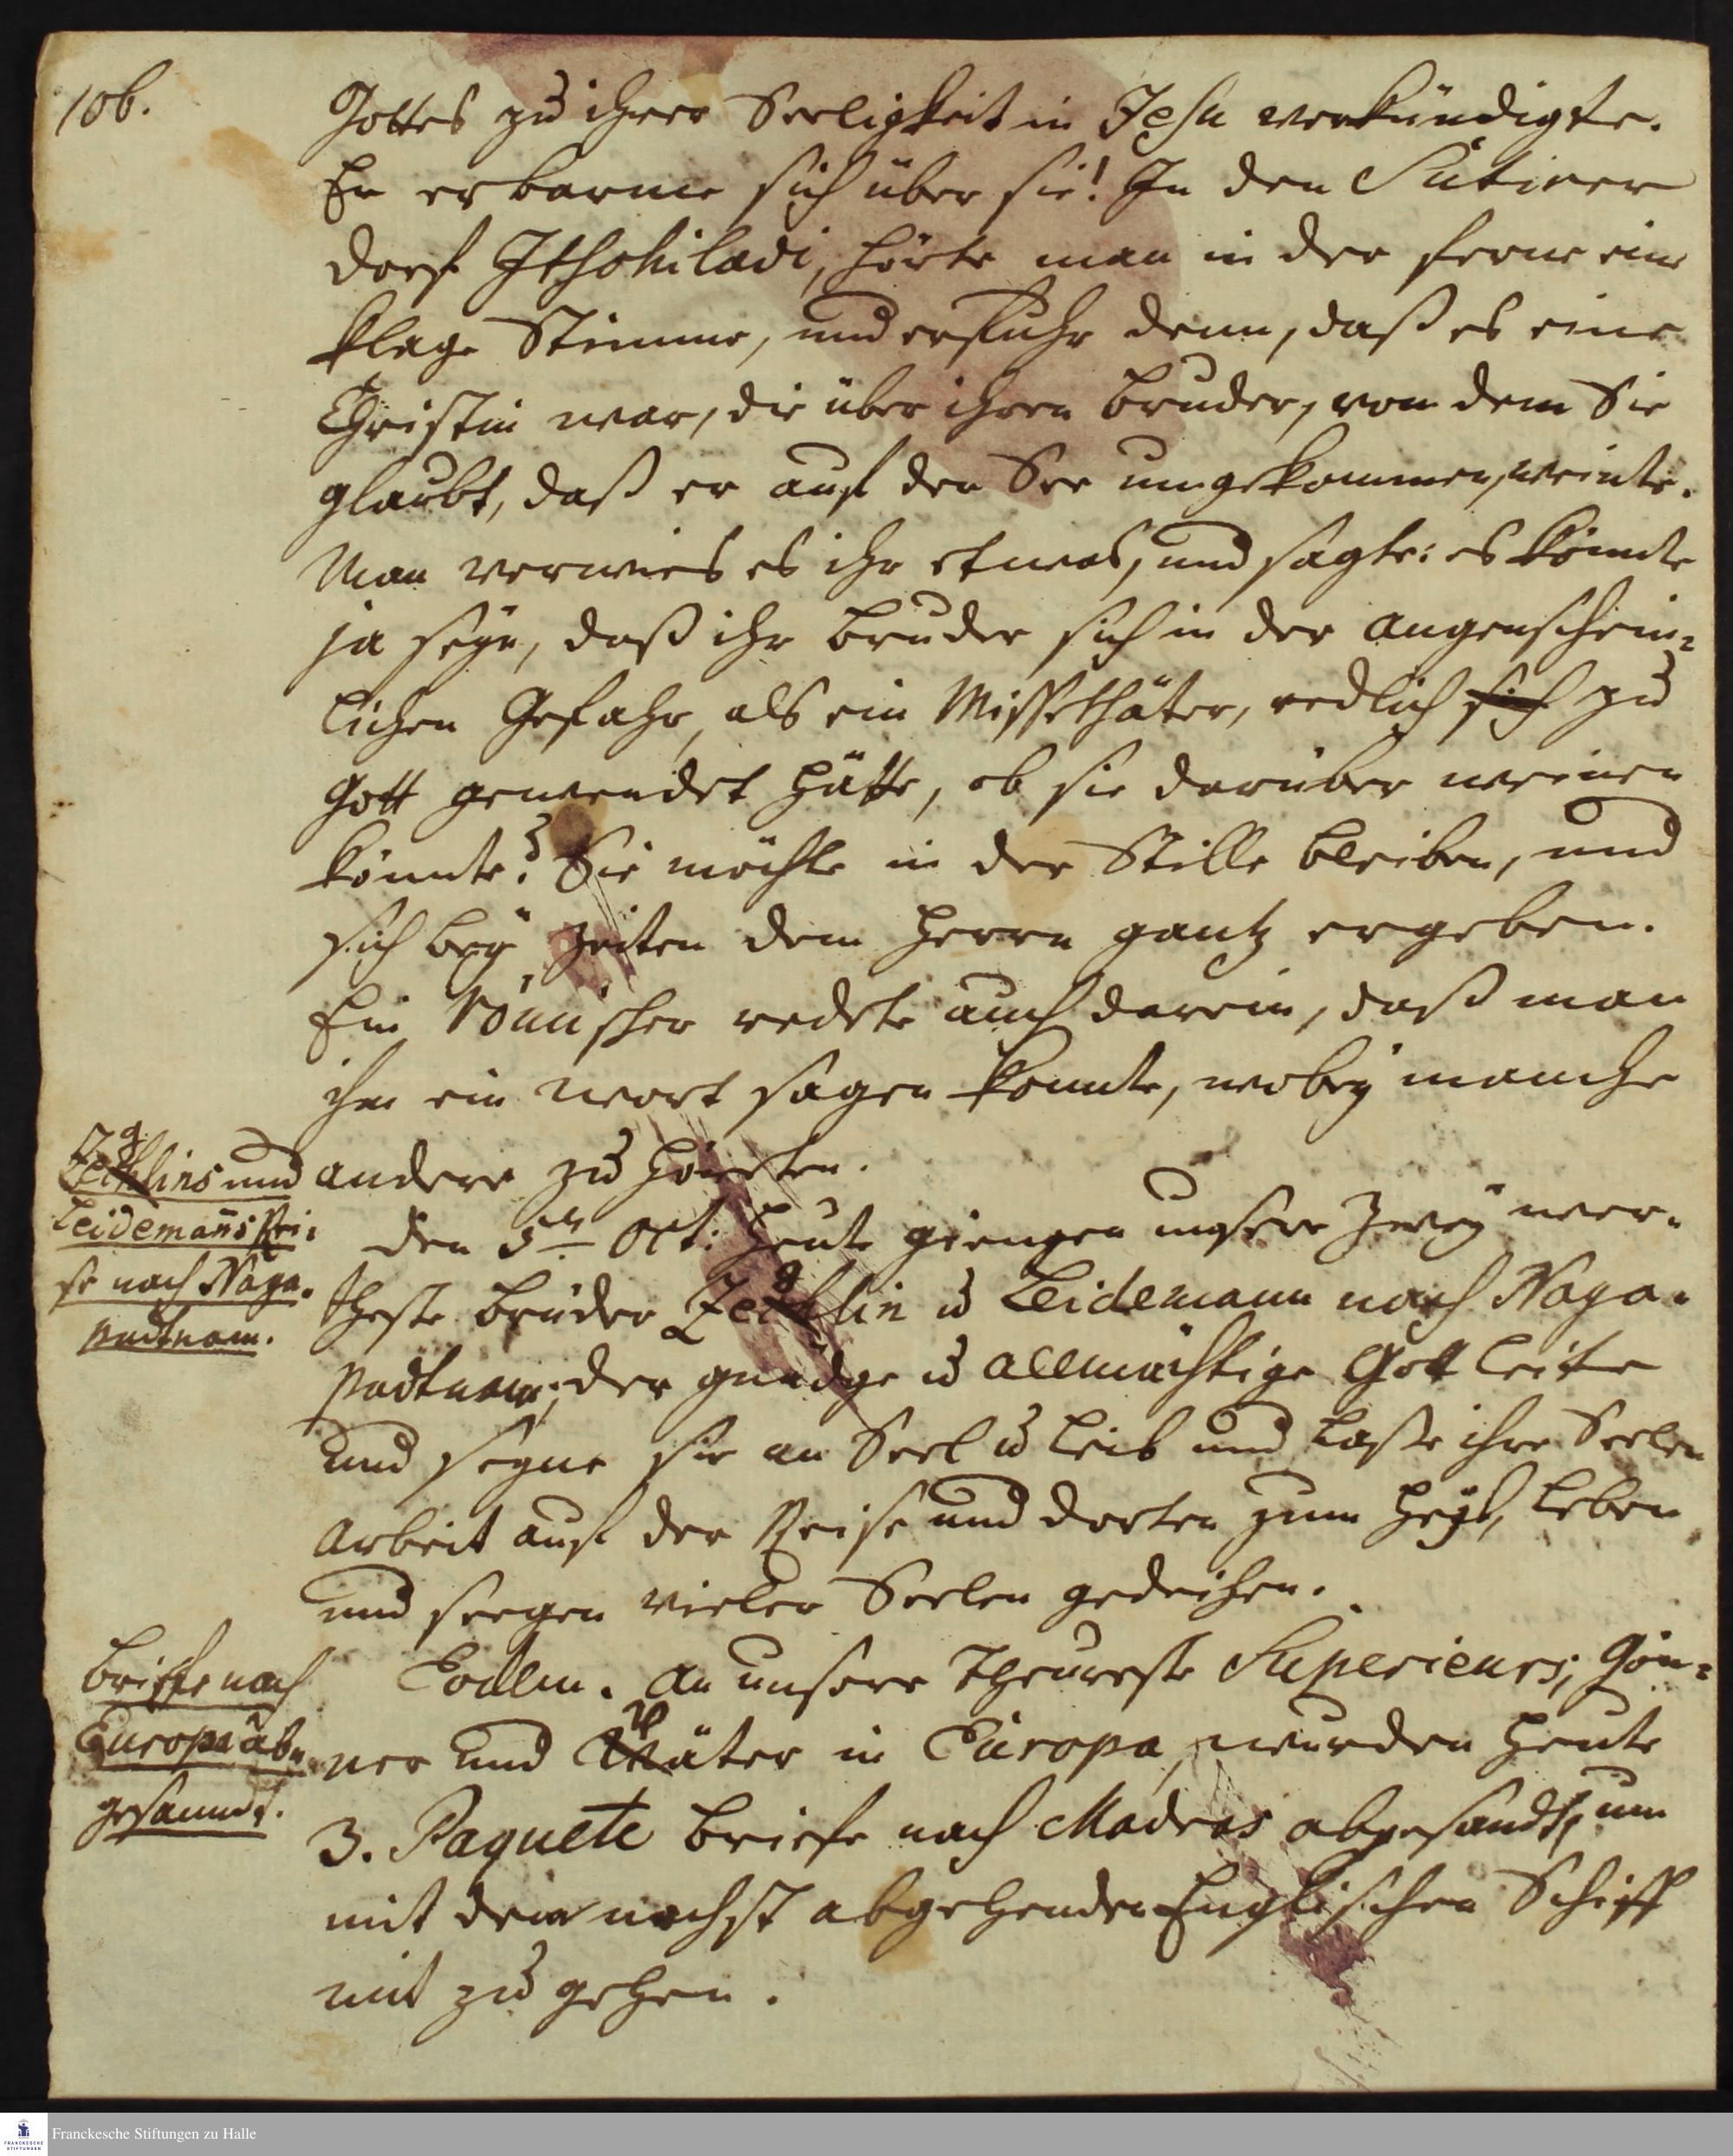 106.
Gottes zu ihrer Seeligkeit in Jesu verkündigte.
Er erbarme sich über sie! In den Sutirer
dorf Itschohiladi, hörte man in der ferne eine
klage Stimme, und erfuhr denn, daß es eine
Christin war, die über ihren bruder, von dem Sie
glaubt, daß er auf der See umgekommen, weinte.
Man verwies es ihr etwas, und sagte: es könnte
ja seyn, daß ihr bruder sich in der augenschein-
lichen Gefahr, als ein Missethäter, redlich sich zu
Gott gewendet hätte, ob sie darüber weinen
könnte? Sie möchte in der Stille bleiben, und
sich bey zeiten dem Herrn gantz ergeben.
Ein Römischer redete auch darein, daß man
ihm ein wort sagen konnte, wobey manche
andere zu höreten.
Zeglins und
Leidemanns Rei-
se nach Naga-
padtnam.
den 5ten Oct: heute giengen unsere zwey wer-
theste brüder Zeglin u Leidemann nach Naga-
padtnam; der gnädge u allmächtige Gott leite
und segne sie an Seel u Leib und laße ihre Seelen
arbeit auf der Reise und dorten zum Heyl, Leben
und seegen vieler Seelen gedeihen.
briefe nach
Europa ab-
gesanndt.
Eodem. An unsere theureste Superieurs, Gön-
ner und Väter in Europa, wurden heute
3. Paquete briefe nach Madras abgesandt, um
mit dem nechst abgehenden Englischen Schiff
mit zu gehen.
Franckesche Stiftungen zu Halle